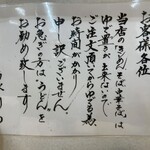 お客様各位
当店のきしめん、そば、中華そばは
ゆで置きが出来ませんので
ご注文頂いてからゆでる為
お時間がかかり
申し訳ございません。
お急ぎの方は「うどん」を
お勧め致します